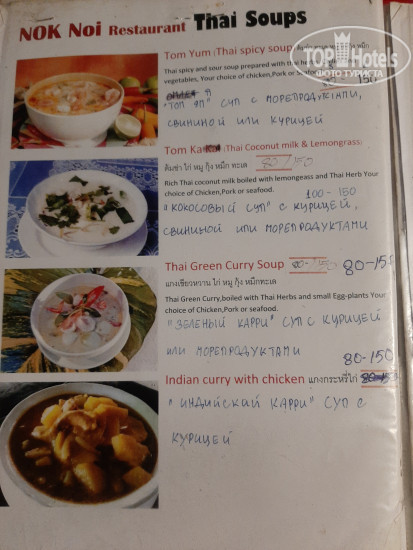 NOK Noi Restaurant Thai Soups
Tom Yum (Thai spicy soup)
Thai spicy and sour soup prepared with thai herb
vegetables, Your choice of chicken,Pork or Seafood 150
"ТОМ ЯМ" СУП С МОРЕПРОДУКТАМИ,
СВИНИНОЙ ИЛИ КУРИЦЕЙ
Tom Ka (Thai Coconut milk & Lemongrass)
ต้มข่า ไก่ หมู กุ้ง หมึก ทะเล 80/150
Rich Thai coconut milk boiled with lemongeass and Thai Herb Your
choice of Chicken,Pork or seafood. 100-150
"КОКОСОВЫЙ СУП" С КУРИЦЕЙ,
СВИНИНОЙ ИЛИ МОРЕПРОДУКТАМИ
Thai Green Curry Soup 80-150
แกงเขียวหวาน ไก่ หมู กุ้ง หมึกทะเล
Thai Green Curry,boiled with Thai Herbs and small Egg-plants Your
choice of Chicken,Pork or seafood.
"ЗЕЛЕНЫЙ КАРРИ" СУП С КУРИЦЕЙ
ИЛИ МОРЕПРОДУКТАМИ
80-150
Indian curry with chicken แกงกะหรี่ไก่
"ИНДИЙСКИЙ КАРРИ" СУП С
КУРИЦЕЙ
TOP Hotels
ФОТО ТУРИСТА